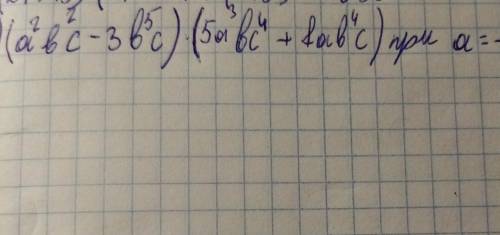 (a²bc² - 3b⁵c) · (5a³bc⁴ + 8ab⁴c) при a = -